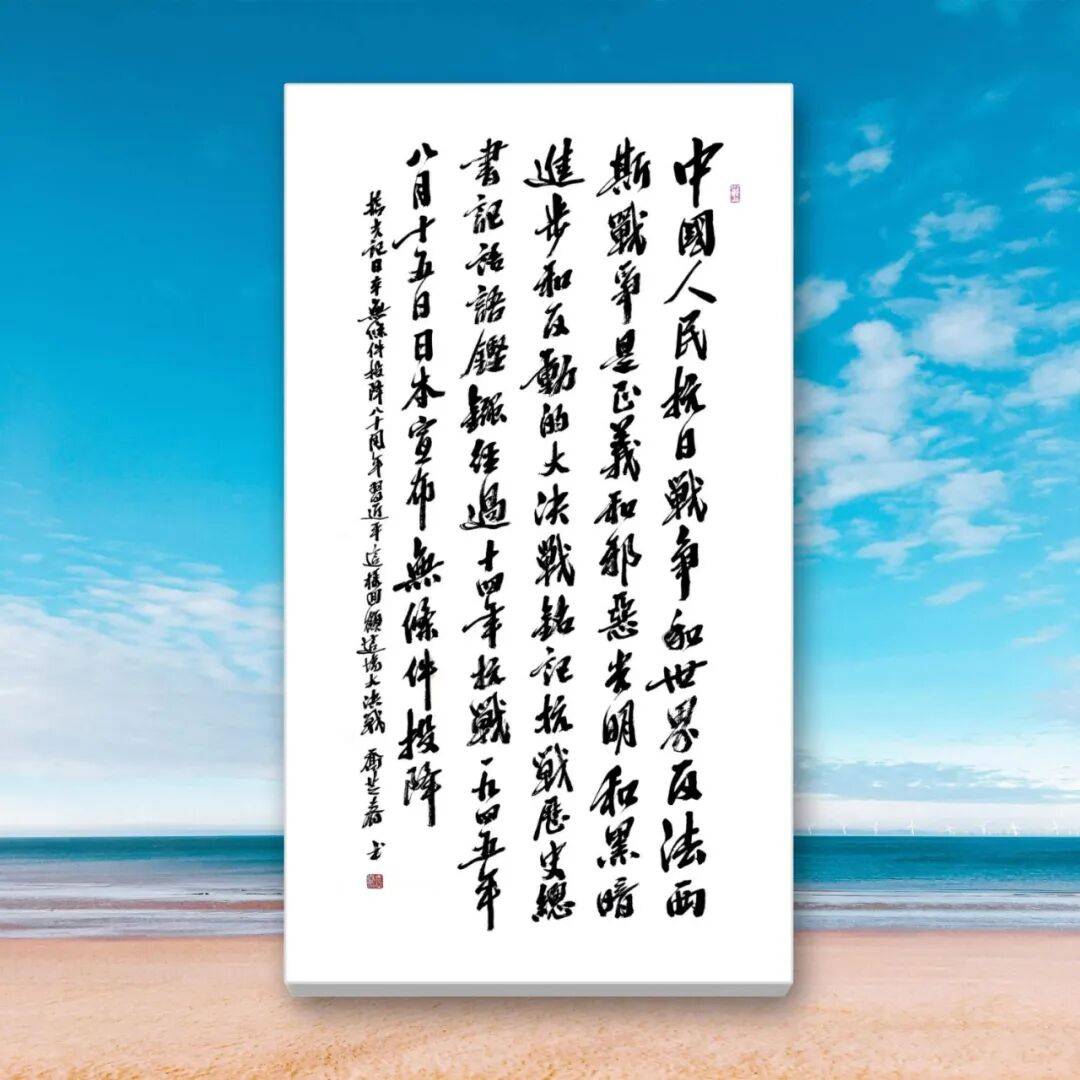 中國人民抗日戰爭和世界反法西
斯戰爭是正義和邪惡光明和黑暗
進步和反動的大決戰銘記抗戰歷史總
書記話語鏗鏘經過十四年抗戰一九四五年
八月十五日日本宣布無條件投降
記日本無條件投降八十周年習近平這樣回顧這場大決戰